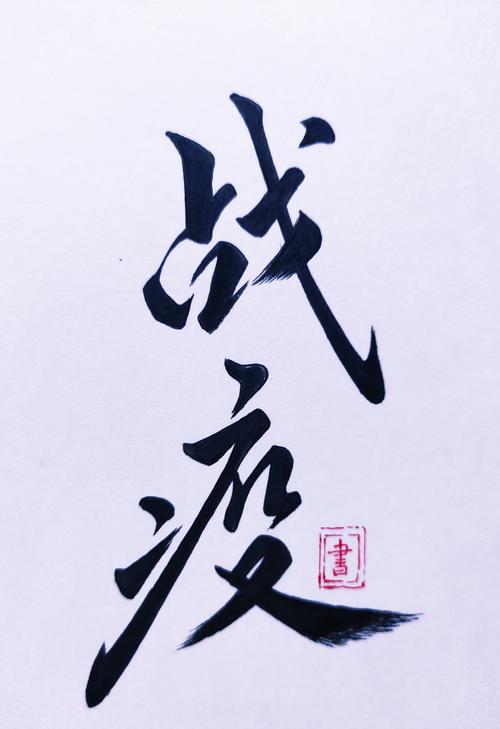 战
疫
書